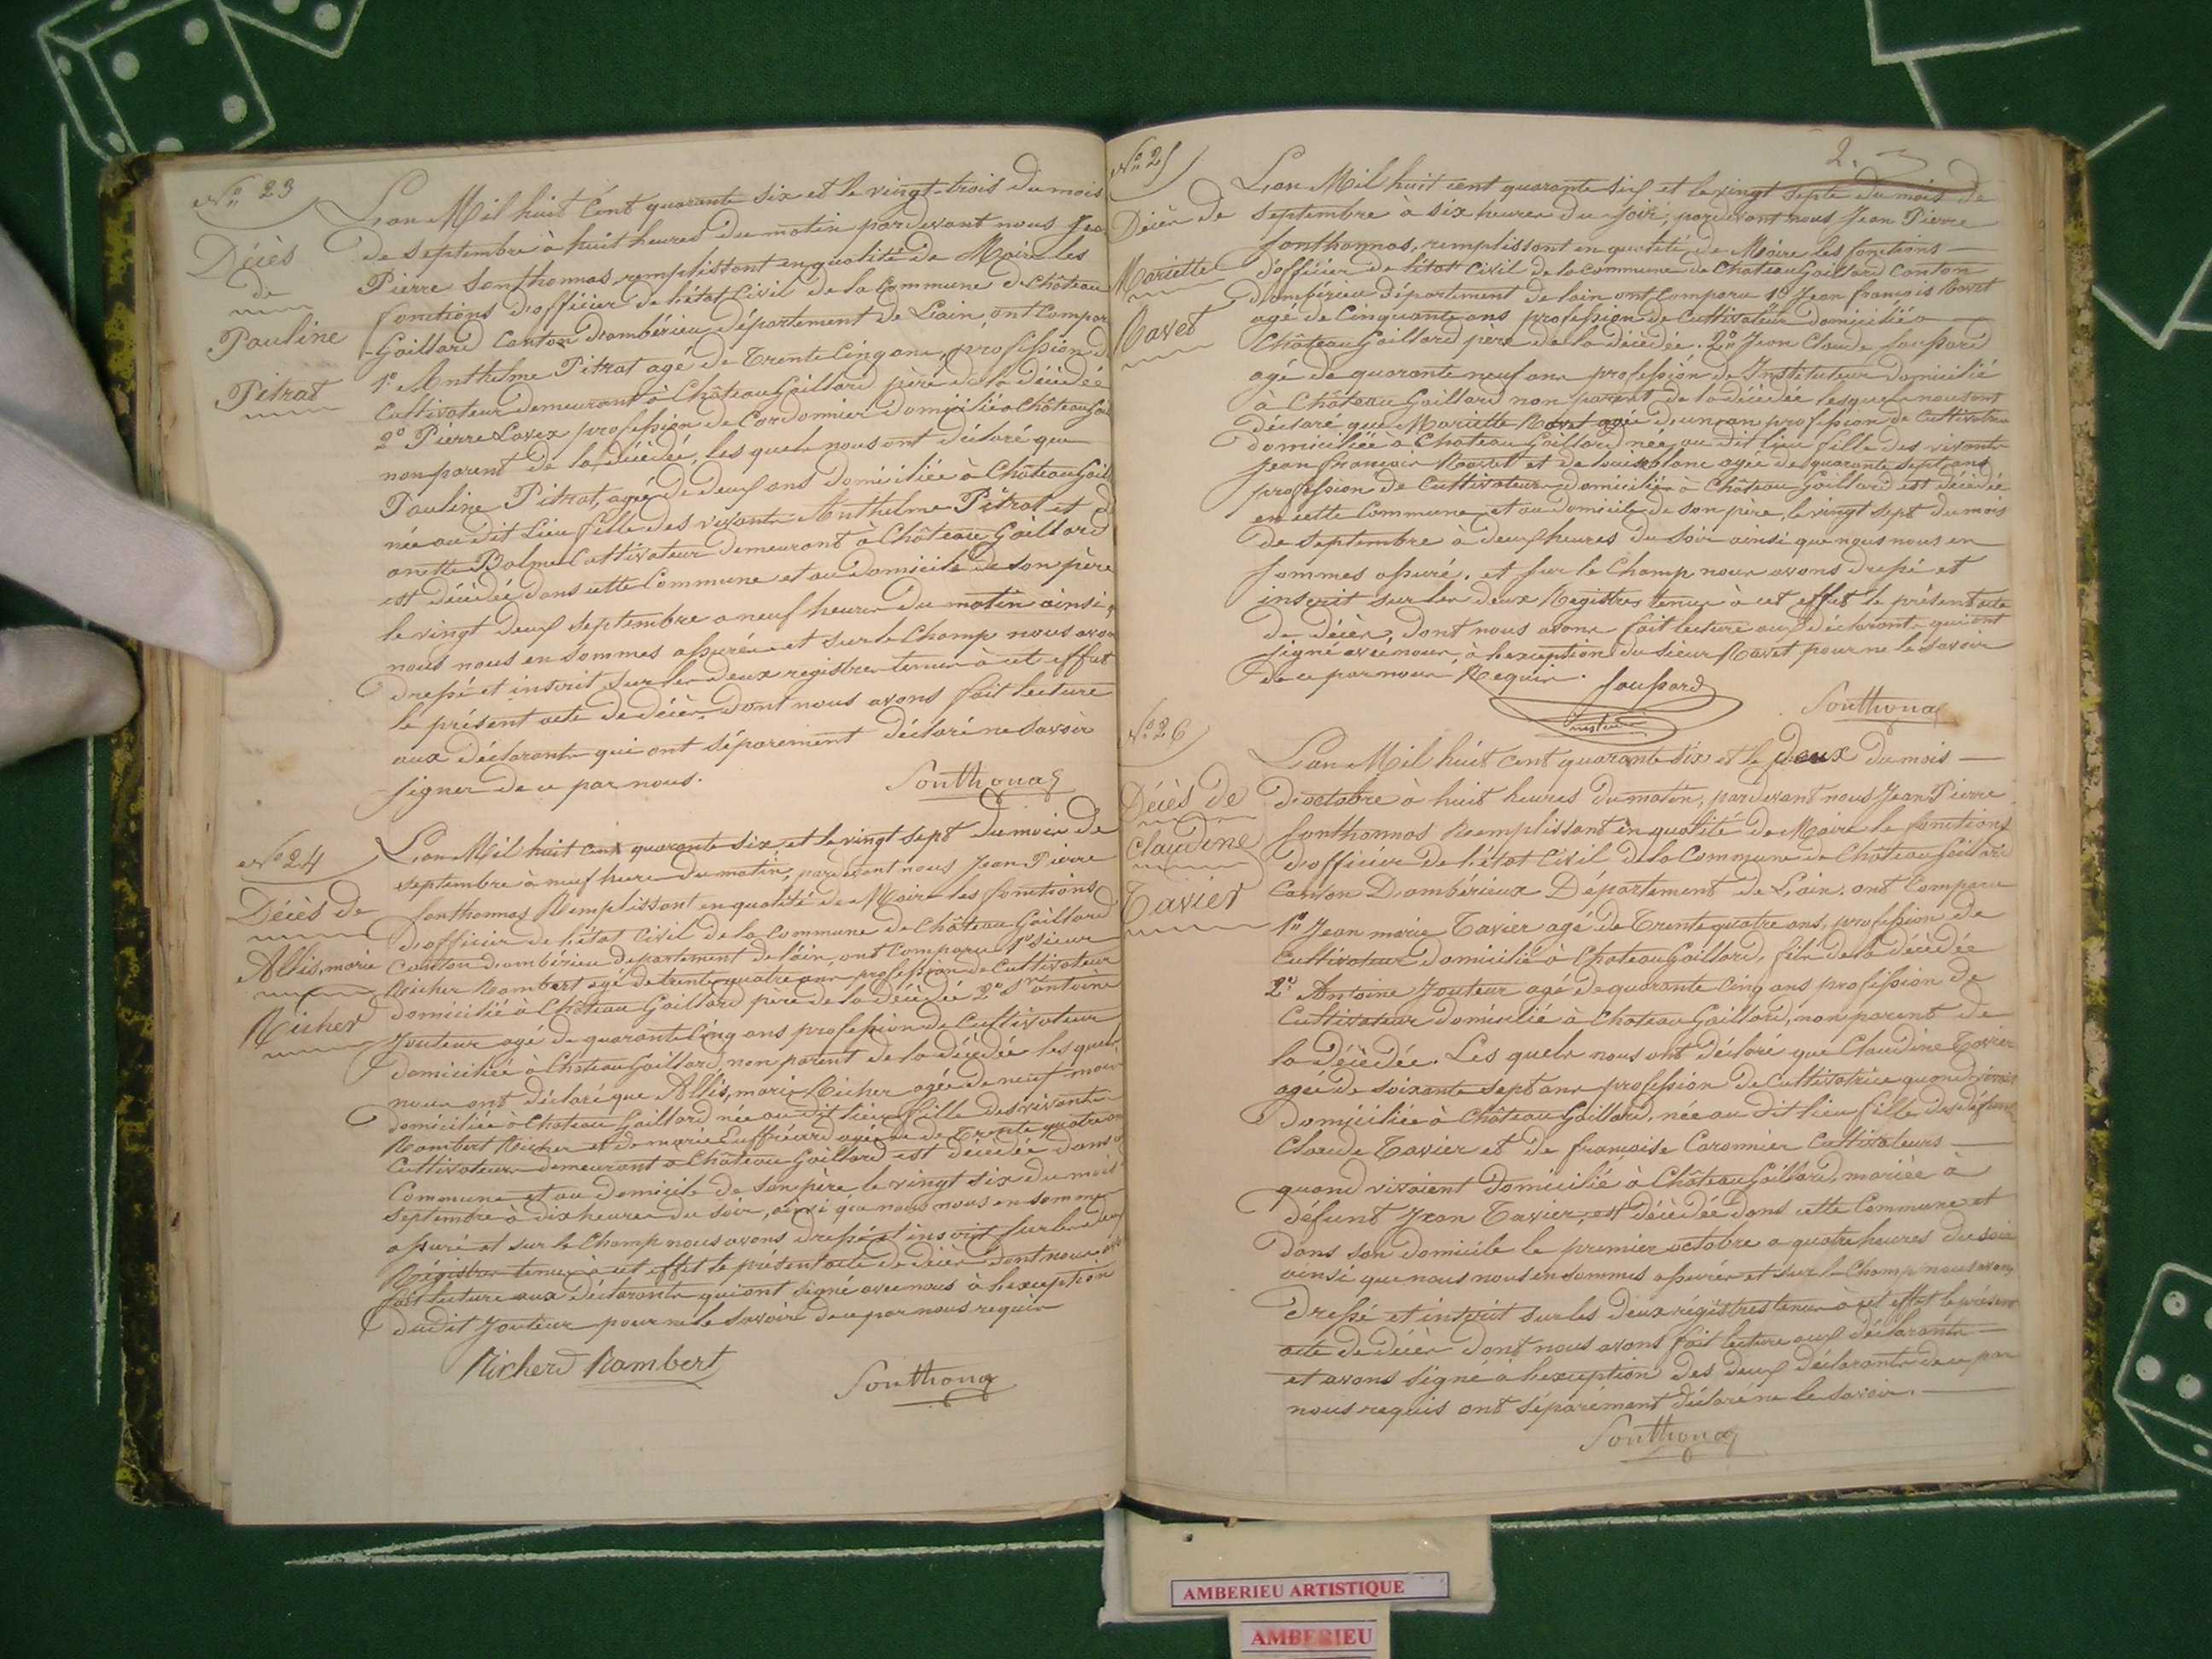 No 23
Décès
de
Pauline
Pitrat
L'an Mil huit Cent quarante six et le vingt-trois du mois
de septembre à huit heures du matin pardevant nous Jean
Pierre Sonthonnas, remplissant en qualité de Maire les
fonctions d'officier de l'état Civil de la Commune de Château
Gaillard Canton d'ambérieu département de L'ain, ont Comparu
1º Anthelme Pitrat agé de Trente Cinq ans, profession de
Cultivateur demeurant à Château Gaillard père de la décédée
2º Pierre Lavex profession de Cordonnier domicilié à Château Gail
non parent de la décédée, les quels nous ont déclaré que
Pauline Pitrat, agée de deux ans domiciliée à Château Gail
née au dit Lieu fille des vivants Anthelme Pitrat et d
anette Balme Cultivateur demeurant à Château Gaillard
est décédée dans cette Commune et au domicile de son père
le vingt deux septembre a neuf heures du matin ainsi q
nous nous en sommes assurés et sur le Champ nous avons
dressé et inscrit sur les deux registres tenus à cet effet
le présent acte de décès, dont nous avons fait lecture
aux déclarants qui ont séparement déclaré ne savoir
signer de ce par nous.
Sonthonas
No 24
Décès de
Allis, marie
Richer
L'an Mil huit Cent quarante six et le vingt sept du mois de
septembre à neuf heure du matin, pardevant nous Jean Pierre
Sonthonnas Remplissant en qualité de Maire les fonctions
d'officier de l'état Civil de la Commune de Château Gaillard
Canton d'ambérieu departement de l'ain, ont Comparu 1º sieur
Richer Rambert agé de trente quatre ans profession de Cultivateur
domicilié à Château Gaillard père de la décédée 2º Sr antoine
Jouteur agé de quarante Cinq ans profession de Cultivateur
domiciliée à Chateau Gaillard, non parent de la décédée les quels
nous ont déclaré que Allis, marie Richer agée de neuf mois
domiciliée à Chateau Gaillard née au dit lieu fille des vivants
Rambert Richer et de marie agée de Trente quatre ans
Cultivateurs demeurant à Château Gaillard est décédée dans
Commune et au domicile de son père le vingt six du mois
septembre à dix heures du soir, ainsi que nous nous en sommes
assuré et sur le Champ nous avons dressé et inscrit sur les deux
Régistres tenus à cet effet le présent acte de décès dont nous
fait lecture aux déclarants qui ont signé avec nous à l'exception
dudit Jouteur pour ne le savoir de ce par nous requis
Richerd Rambert
Sonthonas
2.
No 25
Décès de
Mariette
Ravet
L'an Mil huit cent quarante six et le vingt septe du mois de
septembre à six heures du soir, pardevant nous Jean Pierre
Sonthonnas, remplissant en qualité de Maire les fonctions
d'officier de l'état Civil de la Commune de Chateau Gaillard Canton
d'ambérieu département de l'ain ont Comparu 1º Jean françois Ravet
agé de Cinquante ans profession de Cultivateur domicilié a
Château Gaillard père de la décédée. 2º Jean Claude Joussard
agé de quarante neuf ans profession de Instituteur domicilié
à Château Gaillard non parent de la décédée lesquels nous ont
déclaré que Mariette Ravet agée d'un an profession de Cultivateur
domiciliée à Chateau Gaillard née au dit lieu fille des vivants
Jean françois Ravet et de louise blanc agée de quarante sept ans
profession de Cultivateurs domiciliés à Château Gaillard est décédée
en cette Commune et au domicile de son père, le vingt sept du mois
de septembre à deux heures du soir ainsi que nous nous en
sommes assuré. et sur le Champ nous avons dressé et
inscrit sur les deux Registres tenus à cet effet le présent acte
de décès, dont nous avons fait lecture aux déclarants qui ont
signé avec nous, à l'exception du sieur Ravet pour ne le savoir
de ce par nous Requis.
Joussard
Sonthonas
No 26
Décès de
Claudine
Tavier
L'an Mil huit cent quarante six et le deux du mois
d'octobre à huit heures du matin, pardevant nous Jean Pierre
Sonthonnas Remplissant en qualité de Maire le fonctions
d'officier de l'état Civil de la Commune de Chateau Gaillard
Canton D'ambérieux Département de L'ain. ont Comparu
1º Jean marie Tavier agé de Trente quatre ans, profession de
Cultivateur domicilié à Chateau Gaillard, fils de la décédée
2º Antoine Jouteur agé de quarante Cinq ans profession de
Cultivateur domicilié à Chateau Gaillard, non parent de
la Décédée. Les quels nous ont déclaré que Claudine Tavier
agée de soixante sept ans profession de Cultivatrice quand vivait
domiciliée à Château Gaillard, née au dit lieu fille des défunts
Claude Tavier et de françoise Caronnier Cultivateurs
quand vivaient domicilié à Château Gaillard, mariée à
défunt Jean Tavier, est décédée dans cette Commune et
dans son domicile le premier octobre a quatre heures du soir
ainsi que nous nous en sommes assurés et sur le Champ nous avons
dressé et inscrit sur les deux régistres tenus à cet effet le présent
acte de décès dont nous avons fait lecture aux déclarants
et avons signé à l'exception des deux déclarants de ce par
nous requis ont séparément déclaré ne le savoir.
Sonthonas
AMBERIEU ARTISTIQUE
AMBERIEU